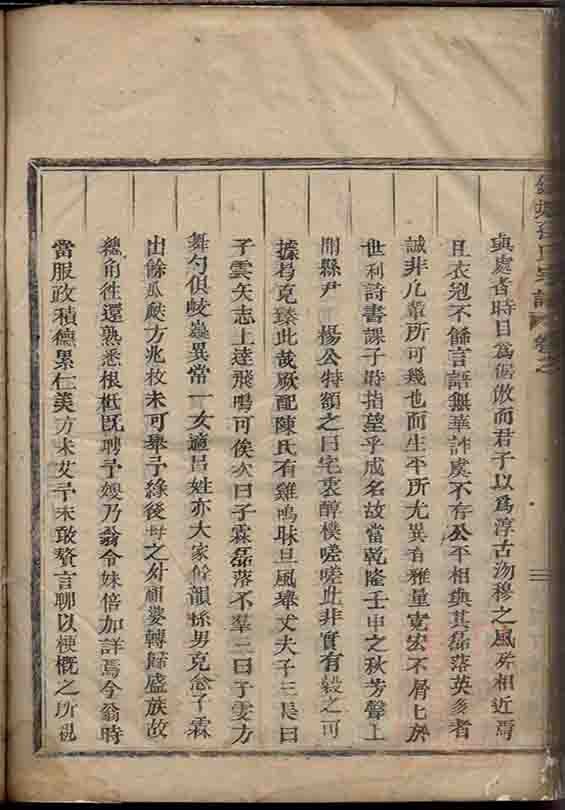 與處者時目爲倨傲而君子以爲淳古沕穆之風庶相近焉
且衣冠不飾言語無華詐虞不存公平相與其磊落英多者
誠非凡輩所可幾也而生平所尤異有雅量寬宏不屑七於
世利詩書課子時指望乎成名故當乾隆壬申之秋芳聲上
聞縣尹 楊公特額之曰宅衷醇樸嗟嗟此非實有毅之可
據曷克臻此哉厥配陳氏有雞鳴昧旦風舉丈夫子三長曰
子雲矢志上達飛鳴可俟次曰子霖磊落不羣三曰子雯方
舞勺俱岐嶷異常一女適呂姓亦大家餘韻孫男克念子霖
出餘瓜瓞方兆枚未可舉予緣後母之外祖婆轉歸盛族故
總角往還熟悉根柢既聘予嫂乃翁令妹倍加詳焉今翁時
當服政積德累仁美方未艾予未敢贅言聊以梗概之所視
氏宗譜 卷之